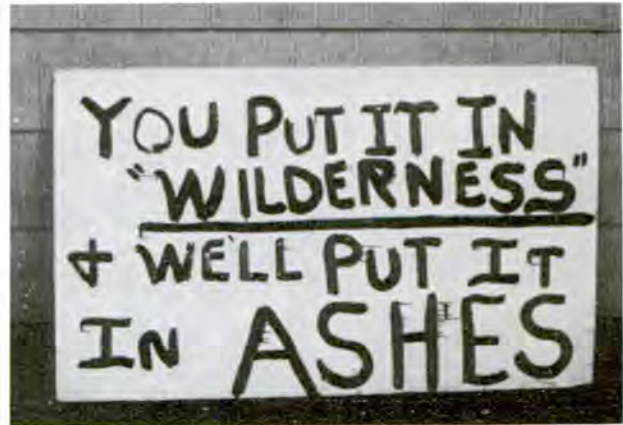 YOU PUT IT IN
"WILDERNESS"
+ WE'LL PUT IT
IN ASHES